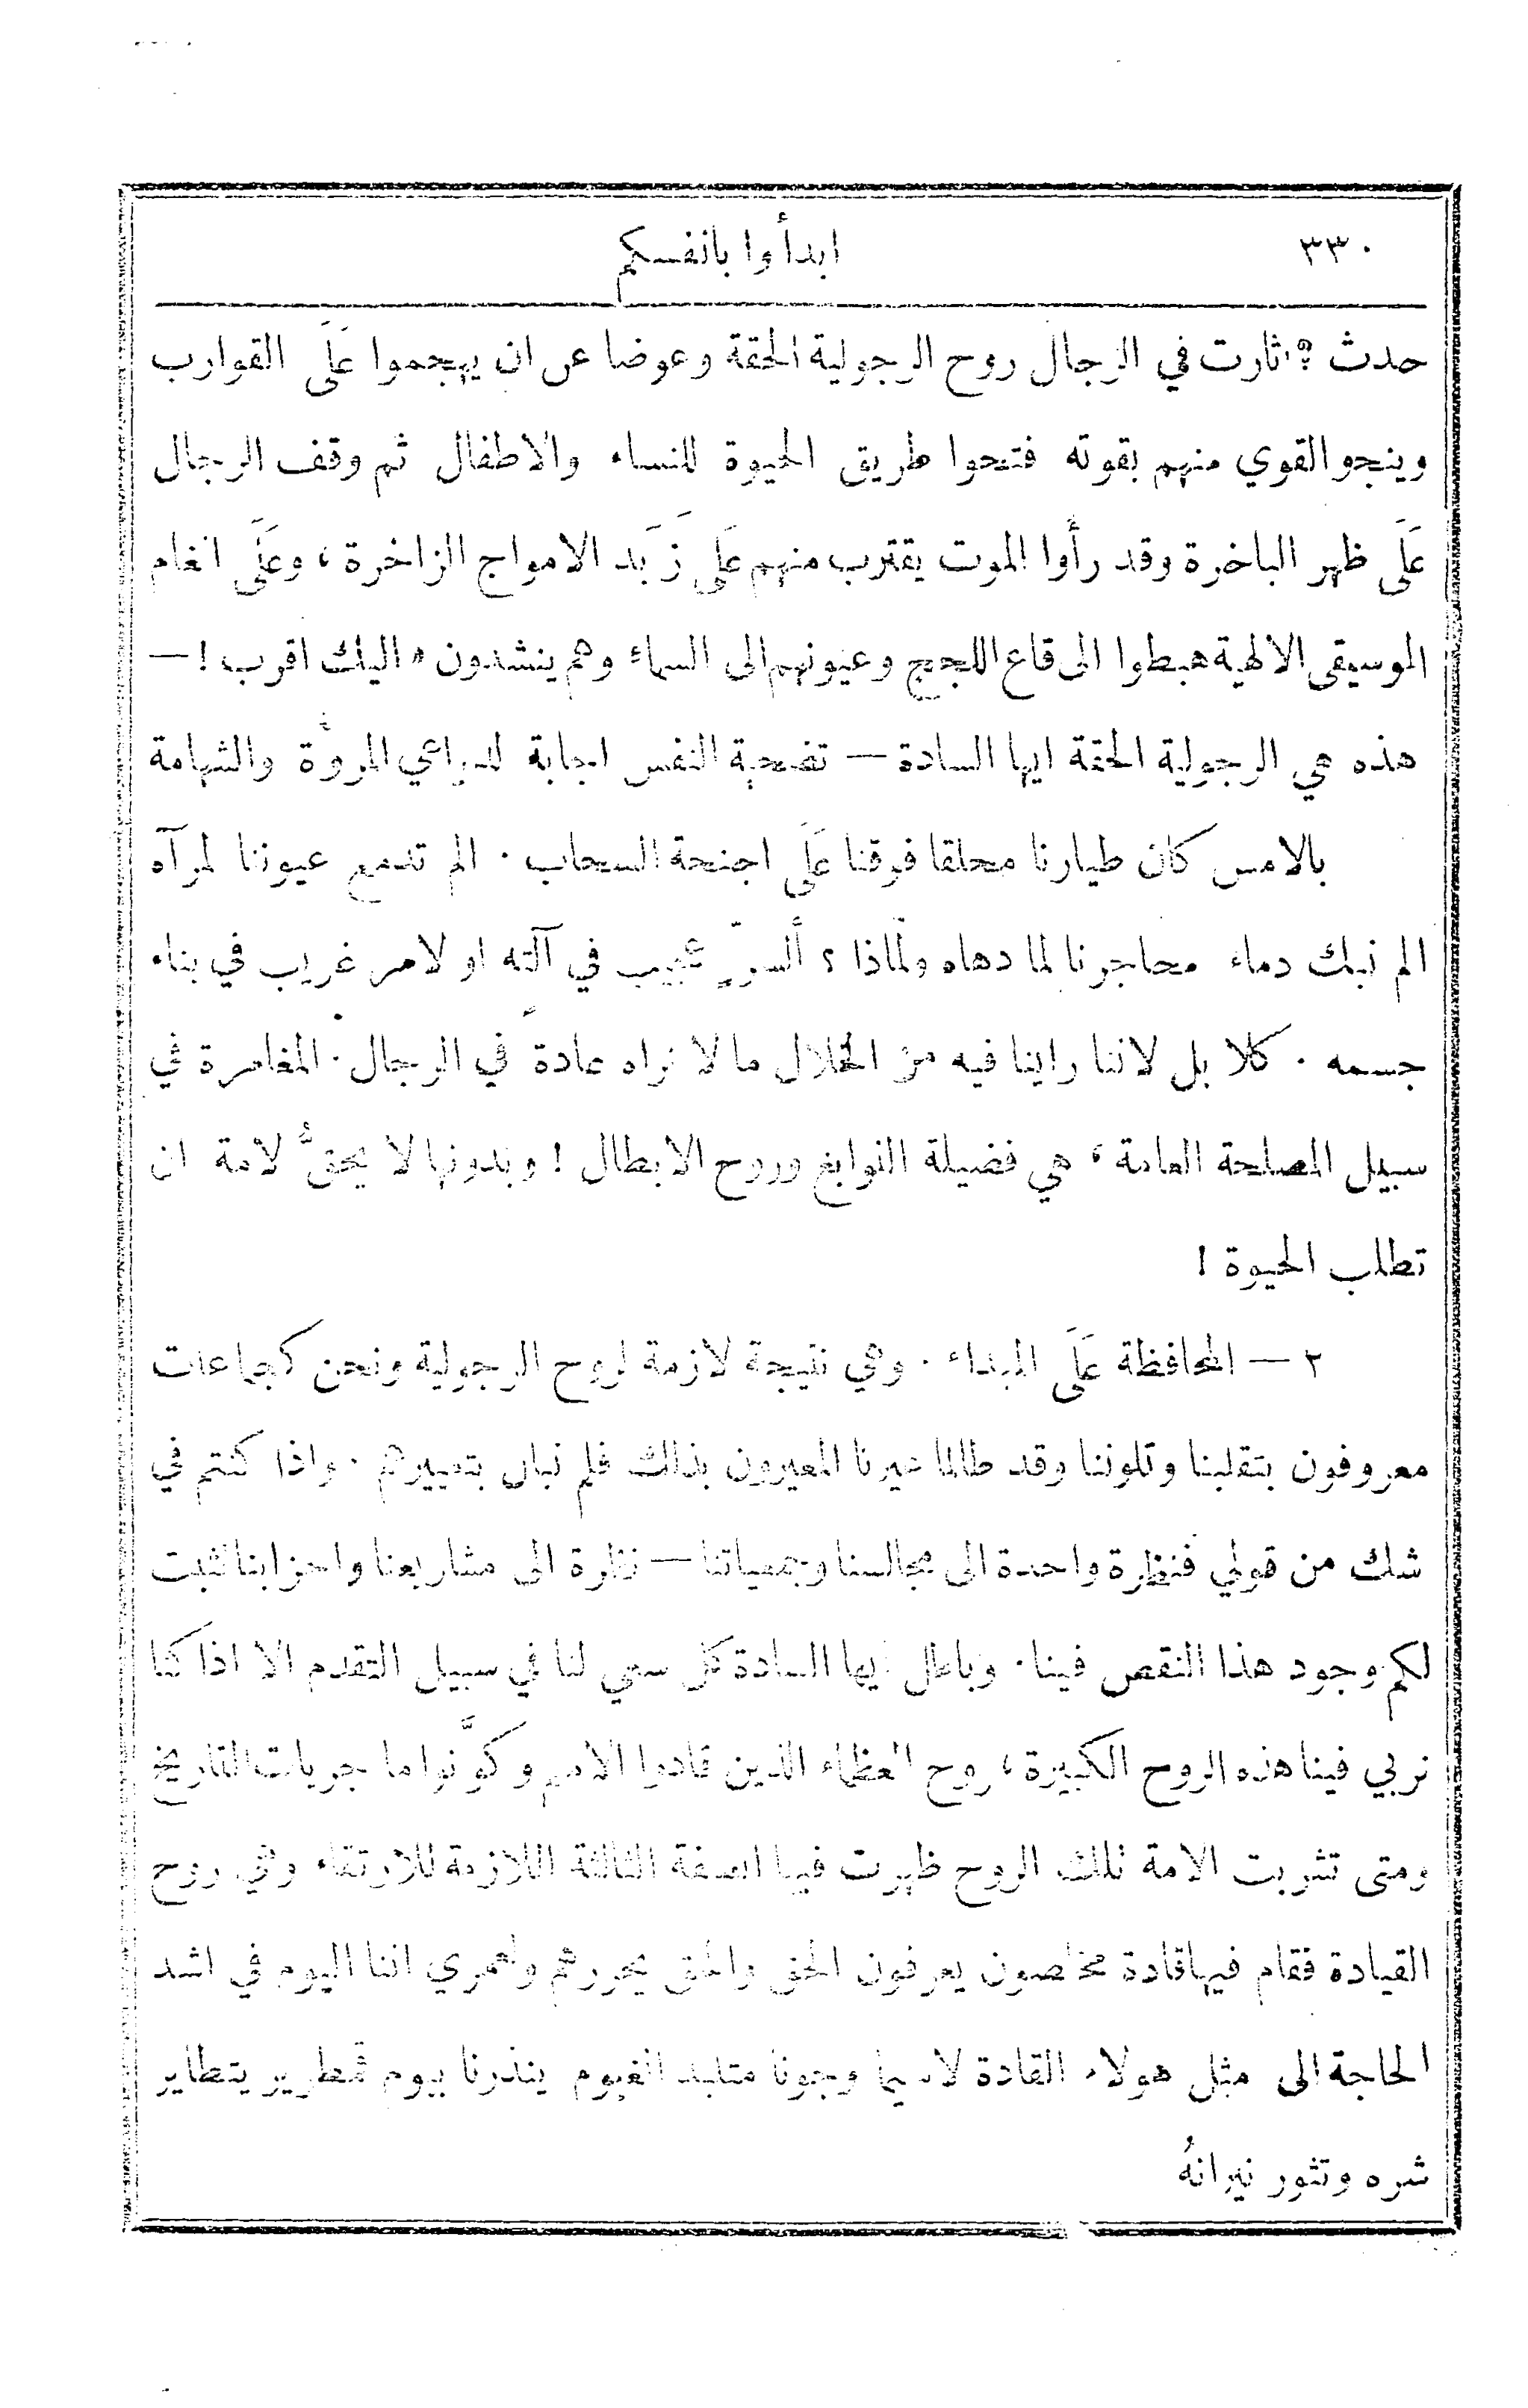 ٣٣٠ ابدأوا بانفسكم
حدث ؟ اثارت في الرجال روح الرجولية الحقة وعوضا عن ان يهجموا عَلَى القوارب
وينجو القوي منهم بقوته فتحوا طريق الحيوة للنساء والاطفال ثم وقف الرجال
عَلَى ظهر الباخرة وقد رأوا الموت يقترب منهم عَلَى زَبَد الامواج الزاخرة ، وعَلَى انغام
الموسيقى الالهية هبطوا الى قاع اللجج وعيونهم الى السماء وهم ينشدون « اليك اقرب ! —
هذه هي الرجولية الحقة ايها السادة — تضحية النفس اجابة لدواعي المروَّة والشهامة
بالامس كان طيارنا محلقا فوقنا عَلَى اجنحة السحاب . الم تدمع عيوننا لمرآه
الم نبك دماء محاجرنا لما دهاه ولماذا ؟ أَلسرٍّ عجيب في آلته او لامر غريب في بناء
جسمه . كلا بل لاننا راينا فيه من الخلال ما لا نراه عادةً في الرجال . المغامرة في
سبيل المصلحة العامة ، هي فضيلة النوابغ وروح الابطال ! وبدونها لا يحقُّ لامة ان
تطلب الحيوة !
٢ — المحافظة عَلَى المبداء . وهي نتيجة لازمة لروح الرجولية ونحن كجماعات
معروفون بتقلبنا وتلوننا وقد طالما عيرنا المعيرون بذلك فلم نبال بتعييرهم . واذا كنتم في
شك من قولي فنظرة واحدة الى مجالسنا وجمعياتنا — نظرة الى مشاريعنا واحزابنا تثبت
لكم وجود هذا النقص فينا . وباطل ايها السادة كل سعي لنا في سبيل التقدم الا اذا كنا
نربي فينا هذه الروح الكبيرة ، روح العظماء الذين قادوا الامم وكوَّنوا ما جريات التاريخ
ومتى تشربت الامة تلك الروح ظهرت فيها الصفة الثالثة اللازمة للارتقاء وهي روح
القيادة فقام فيها قادة مخلصون يعرفون الحق والحق يحررهم ولعمري اننا اليوم في اشد
الحاجة الى مثل هولاء القادة لاسيما وجونا متلبد الغيوم ينذرنا بيوم قمطرير يتطاير
شره وتثور نيرانهُ